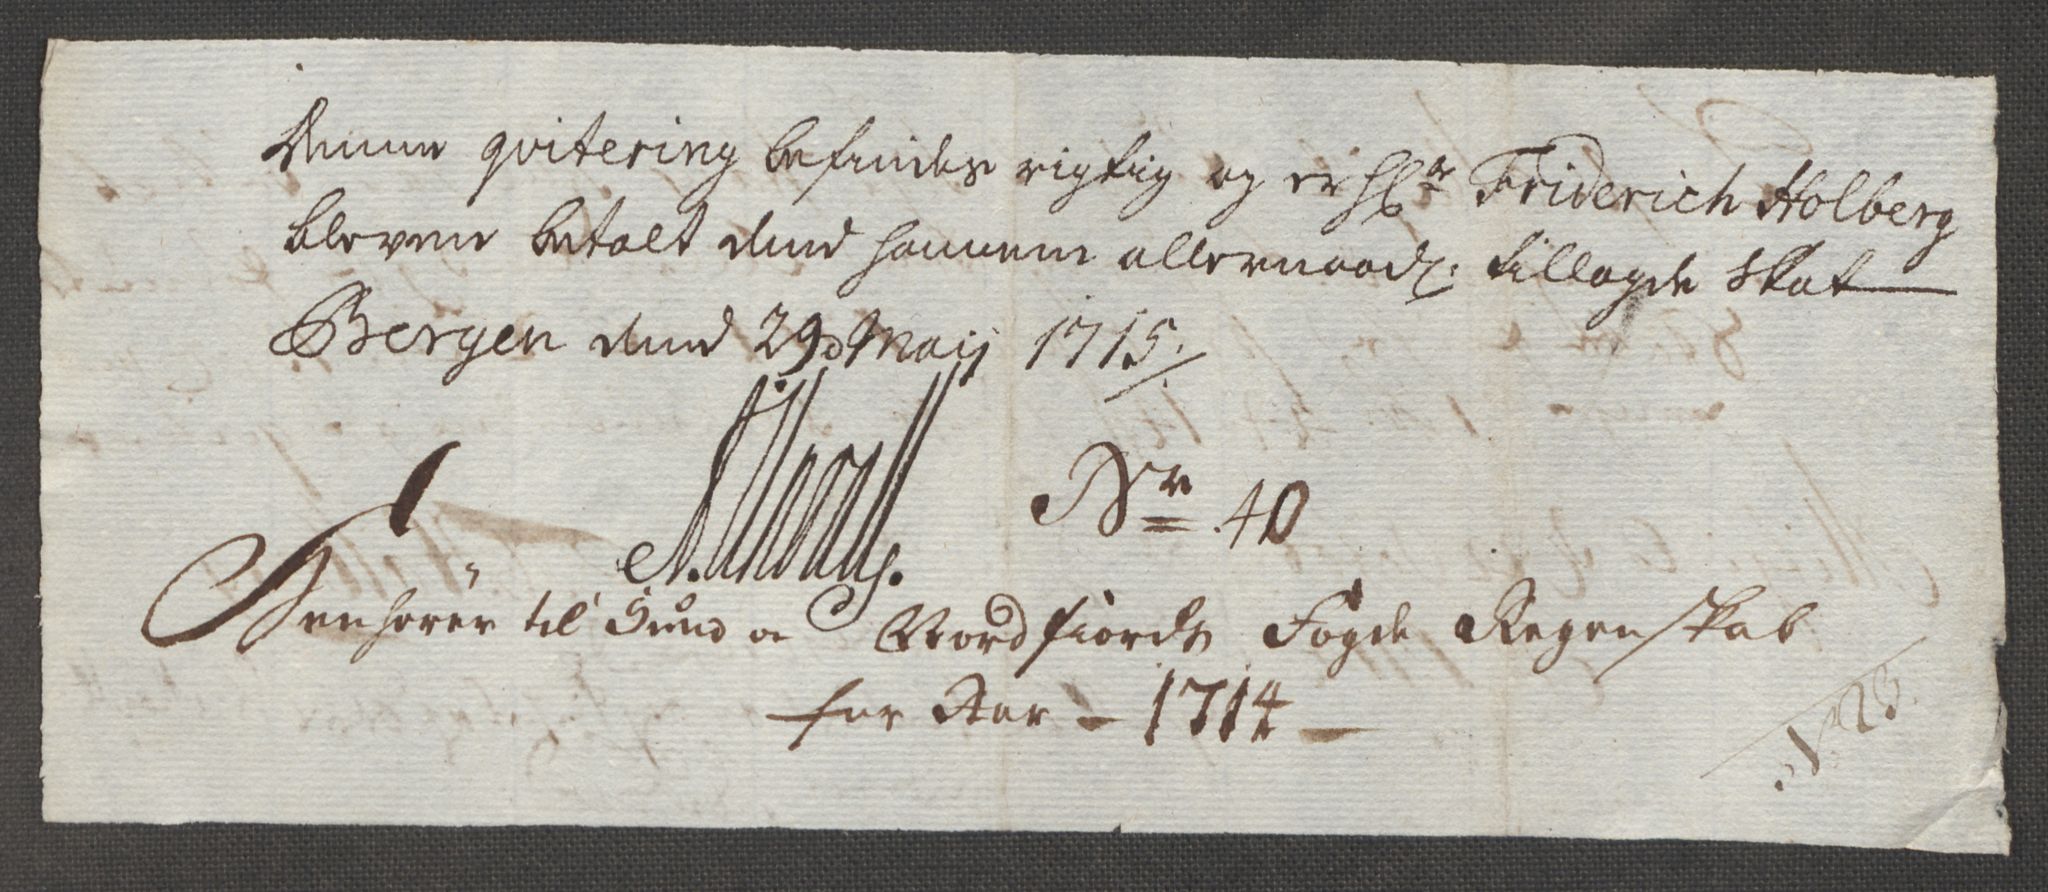 Denne qvitering befindes rigtig og er Hr Friderich Holberg
bleven betalt dend hannem allernaadl: tillagde skat
Bergen dend 29 Maij 1715.
Nr. 40
Henhörer til Sund o Nordfiords Fogde Regenskab
for Aar - 1714 -